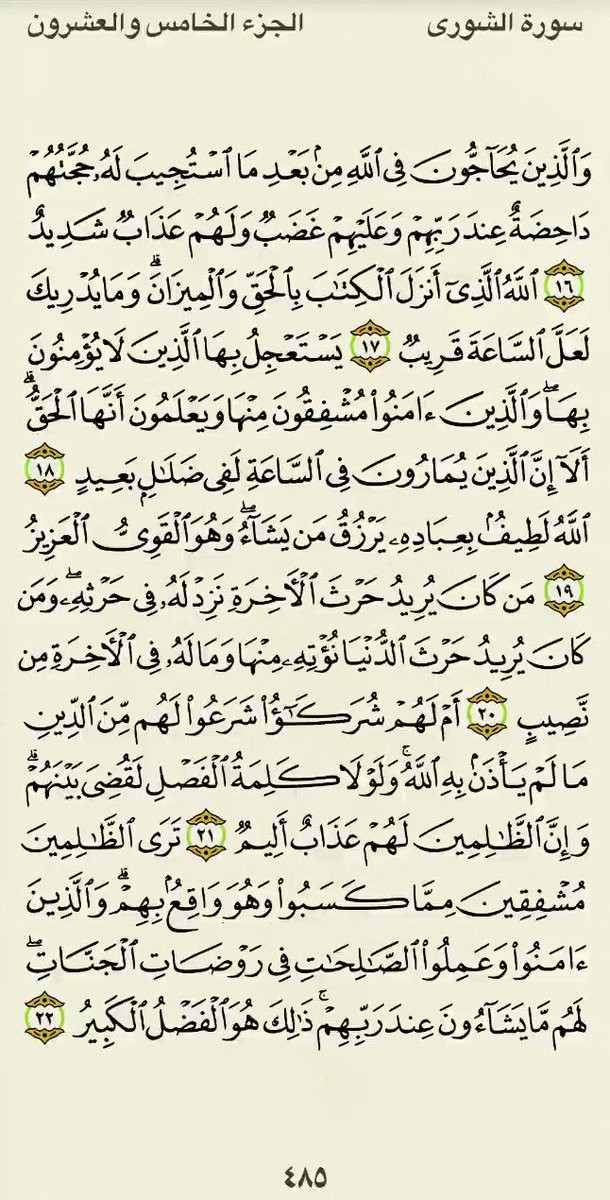 سورة الشورى الجزء الخامس والعشرون
وَٱلَّذِينَ يُحَآجُّونَ فِى ٱللَّهِ مِنۢ بَعْدِ مَا ٱسْتُجِيبَ لَهُۥ حُجَّتُهُمْ
دَاحِضَةٌ عِندَ رَبِّهِمْ وَعَلَيْهِمْ غَضَبٌ وَلَهُمْ عَذَابٌ شَدِيدٌ
١٦ ٱللَّهُ ٱلَّذِىٓ أَنزَلَ ٱلْكِتَٰبَ بِٱلْحَقِّ وَٱلْمِيزَانَۗ وَمَا يُدْرِيكَ
لَعَلَّ ٱلسَّاعَةَ قَرِيبٌ ١٧ يَسْتَعْجِلُ بِهَا ٱلَّذِينَ لَا يُؤْمِنُونَ
بِهَاۖ وَٱلَّذِينَ ءَامَنُوا۟ مُشْفِقُونَ مِنْهَا وَيَعْلَمُونَ أَنَّهَا ٱلْحَقُّۗ
أَلَآ إِنَّ ٱلَّذِينَ يُمَارُونَ فِى ٱلسَّاعَةِ لَفِى ضَلَٰلٍۭ بَعِيدٍ ١٨
ٱللَّهُ لَطِيفٌۢ بِعِبَادِهِۦ يَرْزُقُ مَن يَشَآءُۖ وَهُوَ ٱلْقَوِىُّ ٱلْعَزِيزُ
١٩ مَن كَانَ يُرِيدُ حَرْثَ ٱلْءَاخِرَةِ نَزِدْ لَهُۥ فِى حَرْثِهِۦۖ وَمَن
كَانَ يُرِيدُ حَرْثَ ٱلدُّنْيَا نُؤْتِهِۦ مِنْهَا وَمَا لَهُۥ فِى ٱلْءَاخِرَةِ مِن
نَّصِيبٍ ٢٠ أَمْ لَهُمْ شُرَكَٰٓؤُا۟ شَرَعُوا۟ لَهُم مِّنَ ٱلدِّينِ
مَا لَمْ يَأْذَنۢ بِهِ ٱللَّهُۚ وَلَوْلَا كَلِمَةُ ٱلْفَصْلِ لَقُضِىَ بَيْنَهُمْۗ
وَإِنَّ ٱلظَّٰلِمِينَ لَهُمْ عَذَابٌ أَلِيمٌ ٢١ تَرَى ٱلظَّٰلِمِينَ
مُشْفِقِينَ مِمَّا كَسَبُوا۟ وَهُوَ وَاقِعٌۢ بِهِمْۗ وَٱلَّذِينَ
ءَامَنُوا۟ وَعَمِلُوا۟ ٱلصَّٰلِحَٰتِ فِى رَوْضَاتِ ٱلْجَنَّاتِۖ
لَهُم مَّا يَشَآءُونَ عِندَ رَبِّهِمْۚ ذَٰلِكَ هُوَ ٱلْفَضْلُ ٱلْكَبِيرُ ٢٢
٤٨٥